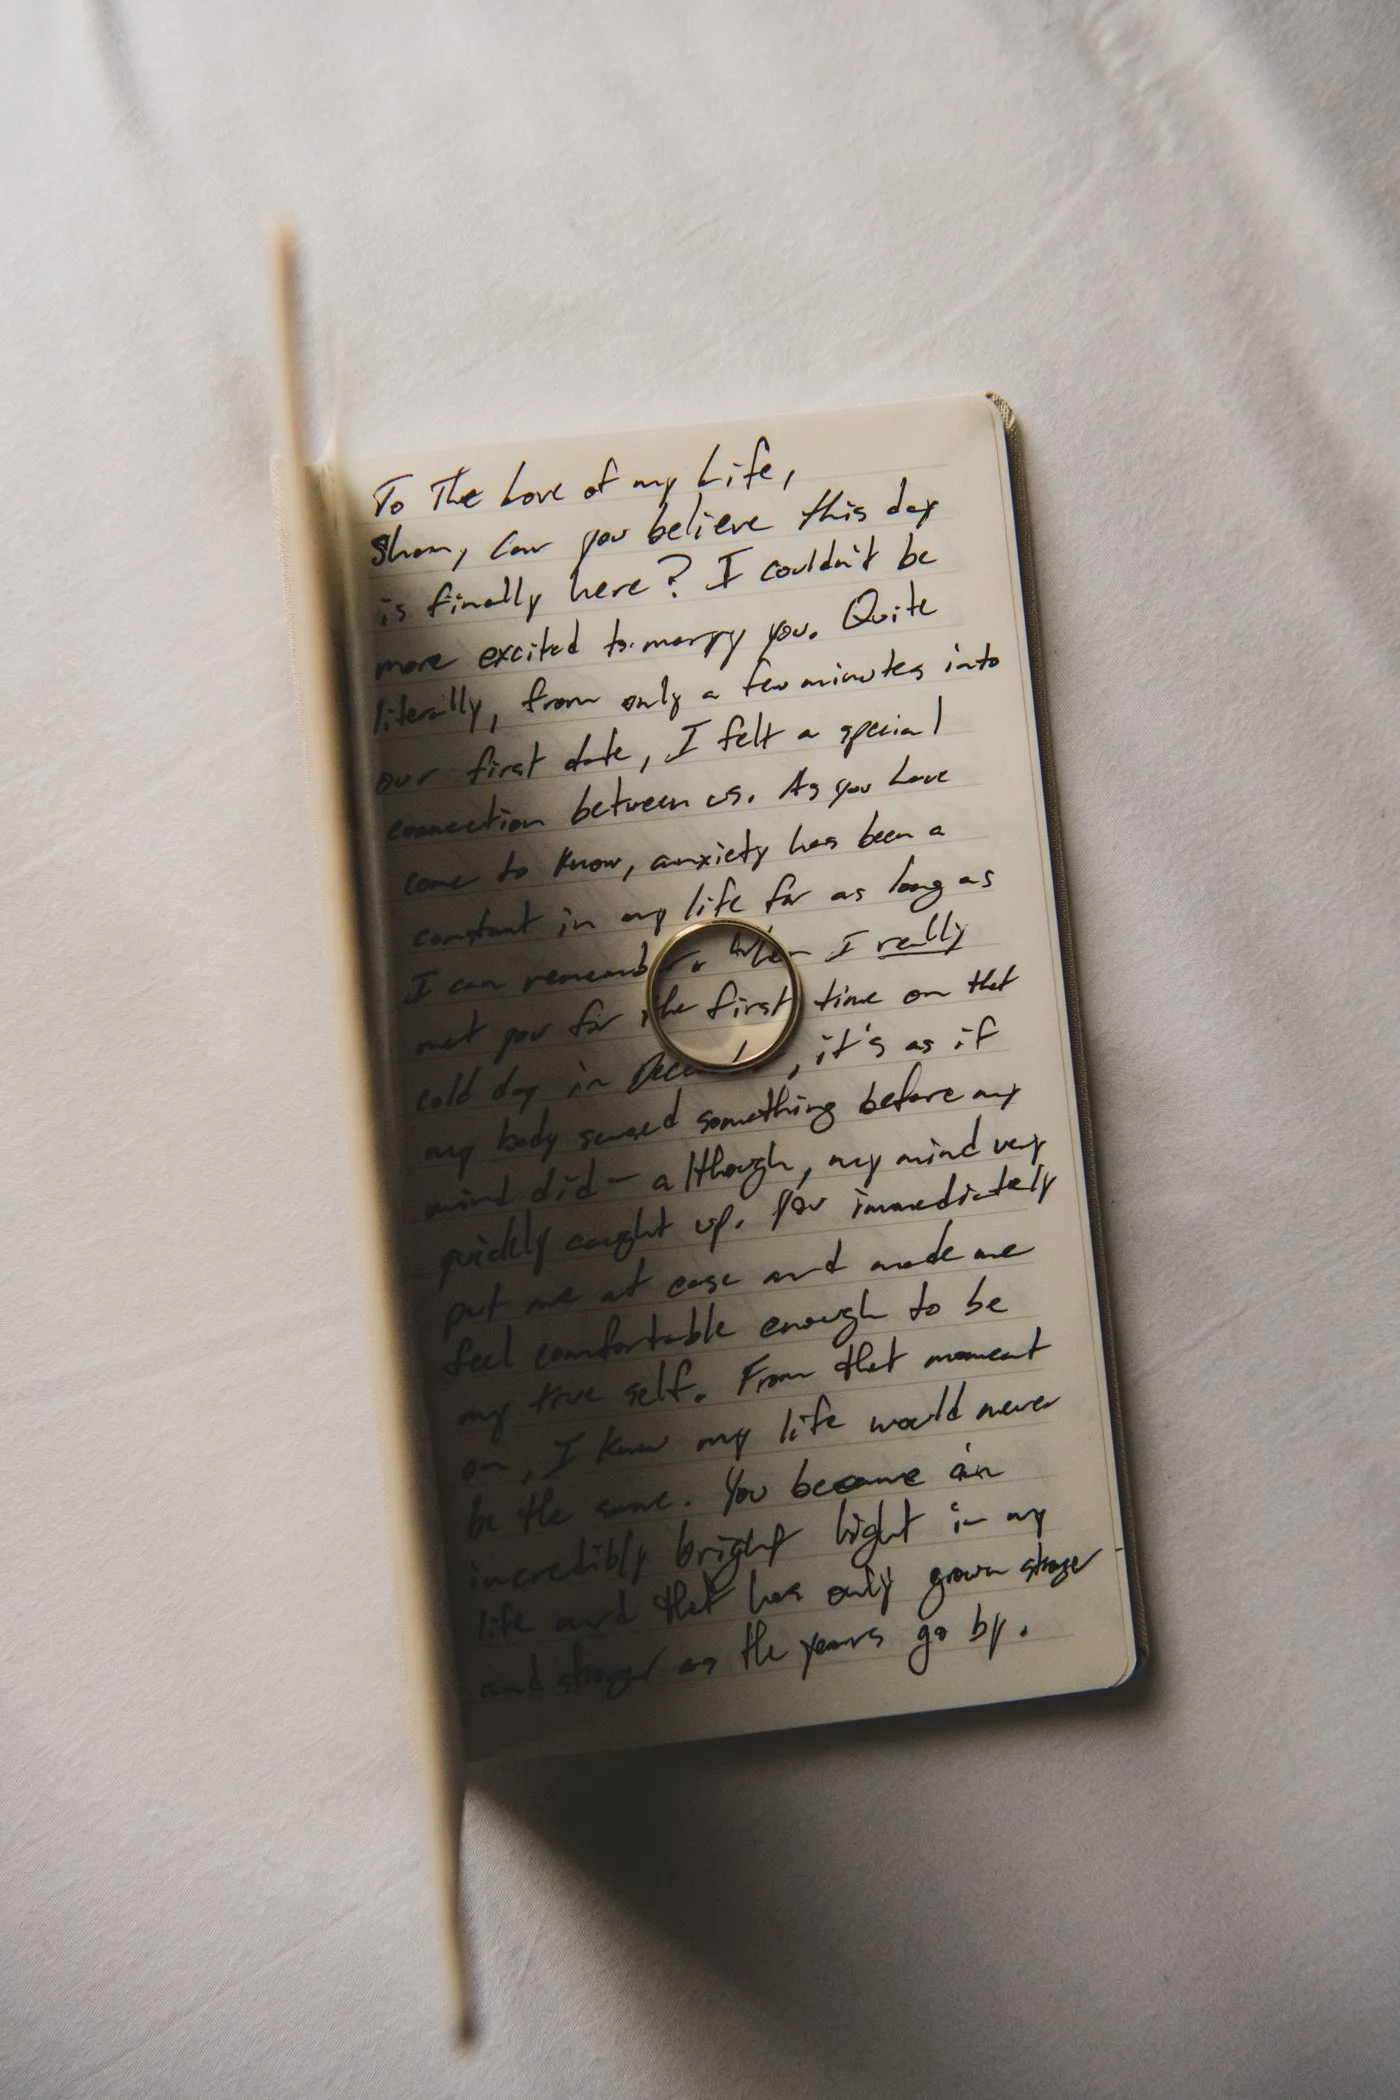 To The Love of my Life,
Sham, can you believe this day
is finally here? I couldn't be
more excited to marry you. Quite
literally, from only a few minutes into
our first date, I felt a special
connection between us. As you have
come to know, anxiety has been a
constant in my life for as long as
I can remember. When I really
met you for the first time on that
cold day in December, it's as if
my body sensed something before my
mind did - although, my mind very
quickly caught up. You immediately
put me at ease and made me
feel comfortable enough to be
my true self. From that moment
on, I knew my life would never
be the same. You became an
incredibly bright light in my
life and that has only grown stronger
and stronger as the years go by.